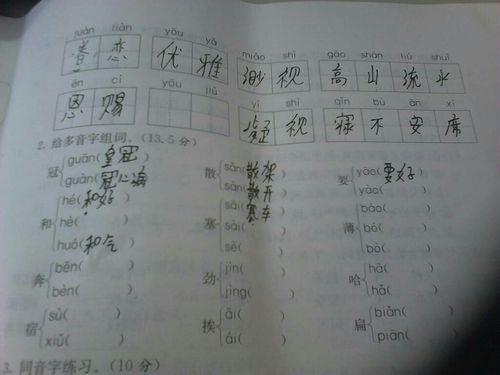 juàn liàn yōu yǎ miǎo shì gāo shān liú shuǐ
眷 恋 优 雅 渺 视 高 山 流 水
ēn cì yōu jiǔ yí shì qǐn bù ān xí
恩 赐 视 寝 不 安 席
2. 给多音字组词。(13.5 分)
冠 guān(皇冠) 散 sǎn(散架) 要 yāo(要好)
guàn(冠心病) sàn(散开) yào( )
和 hé(和好) 塞 sāi(塞车) 薄 báo( )
hè( ) sài( ) bó( )
huó(和气) sè( ) bò( )
奔 bēn( ) 劲 jìn( ) 哈 hā( )
bèn( ) jìng( ) hǎ( )
宿 sù( ) 挨 āi( ) 扁 biǎn( )
xiǔ( ) ái( ) piān( )
3. 同音字练习。(10 分)